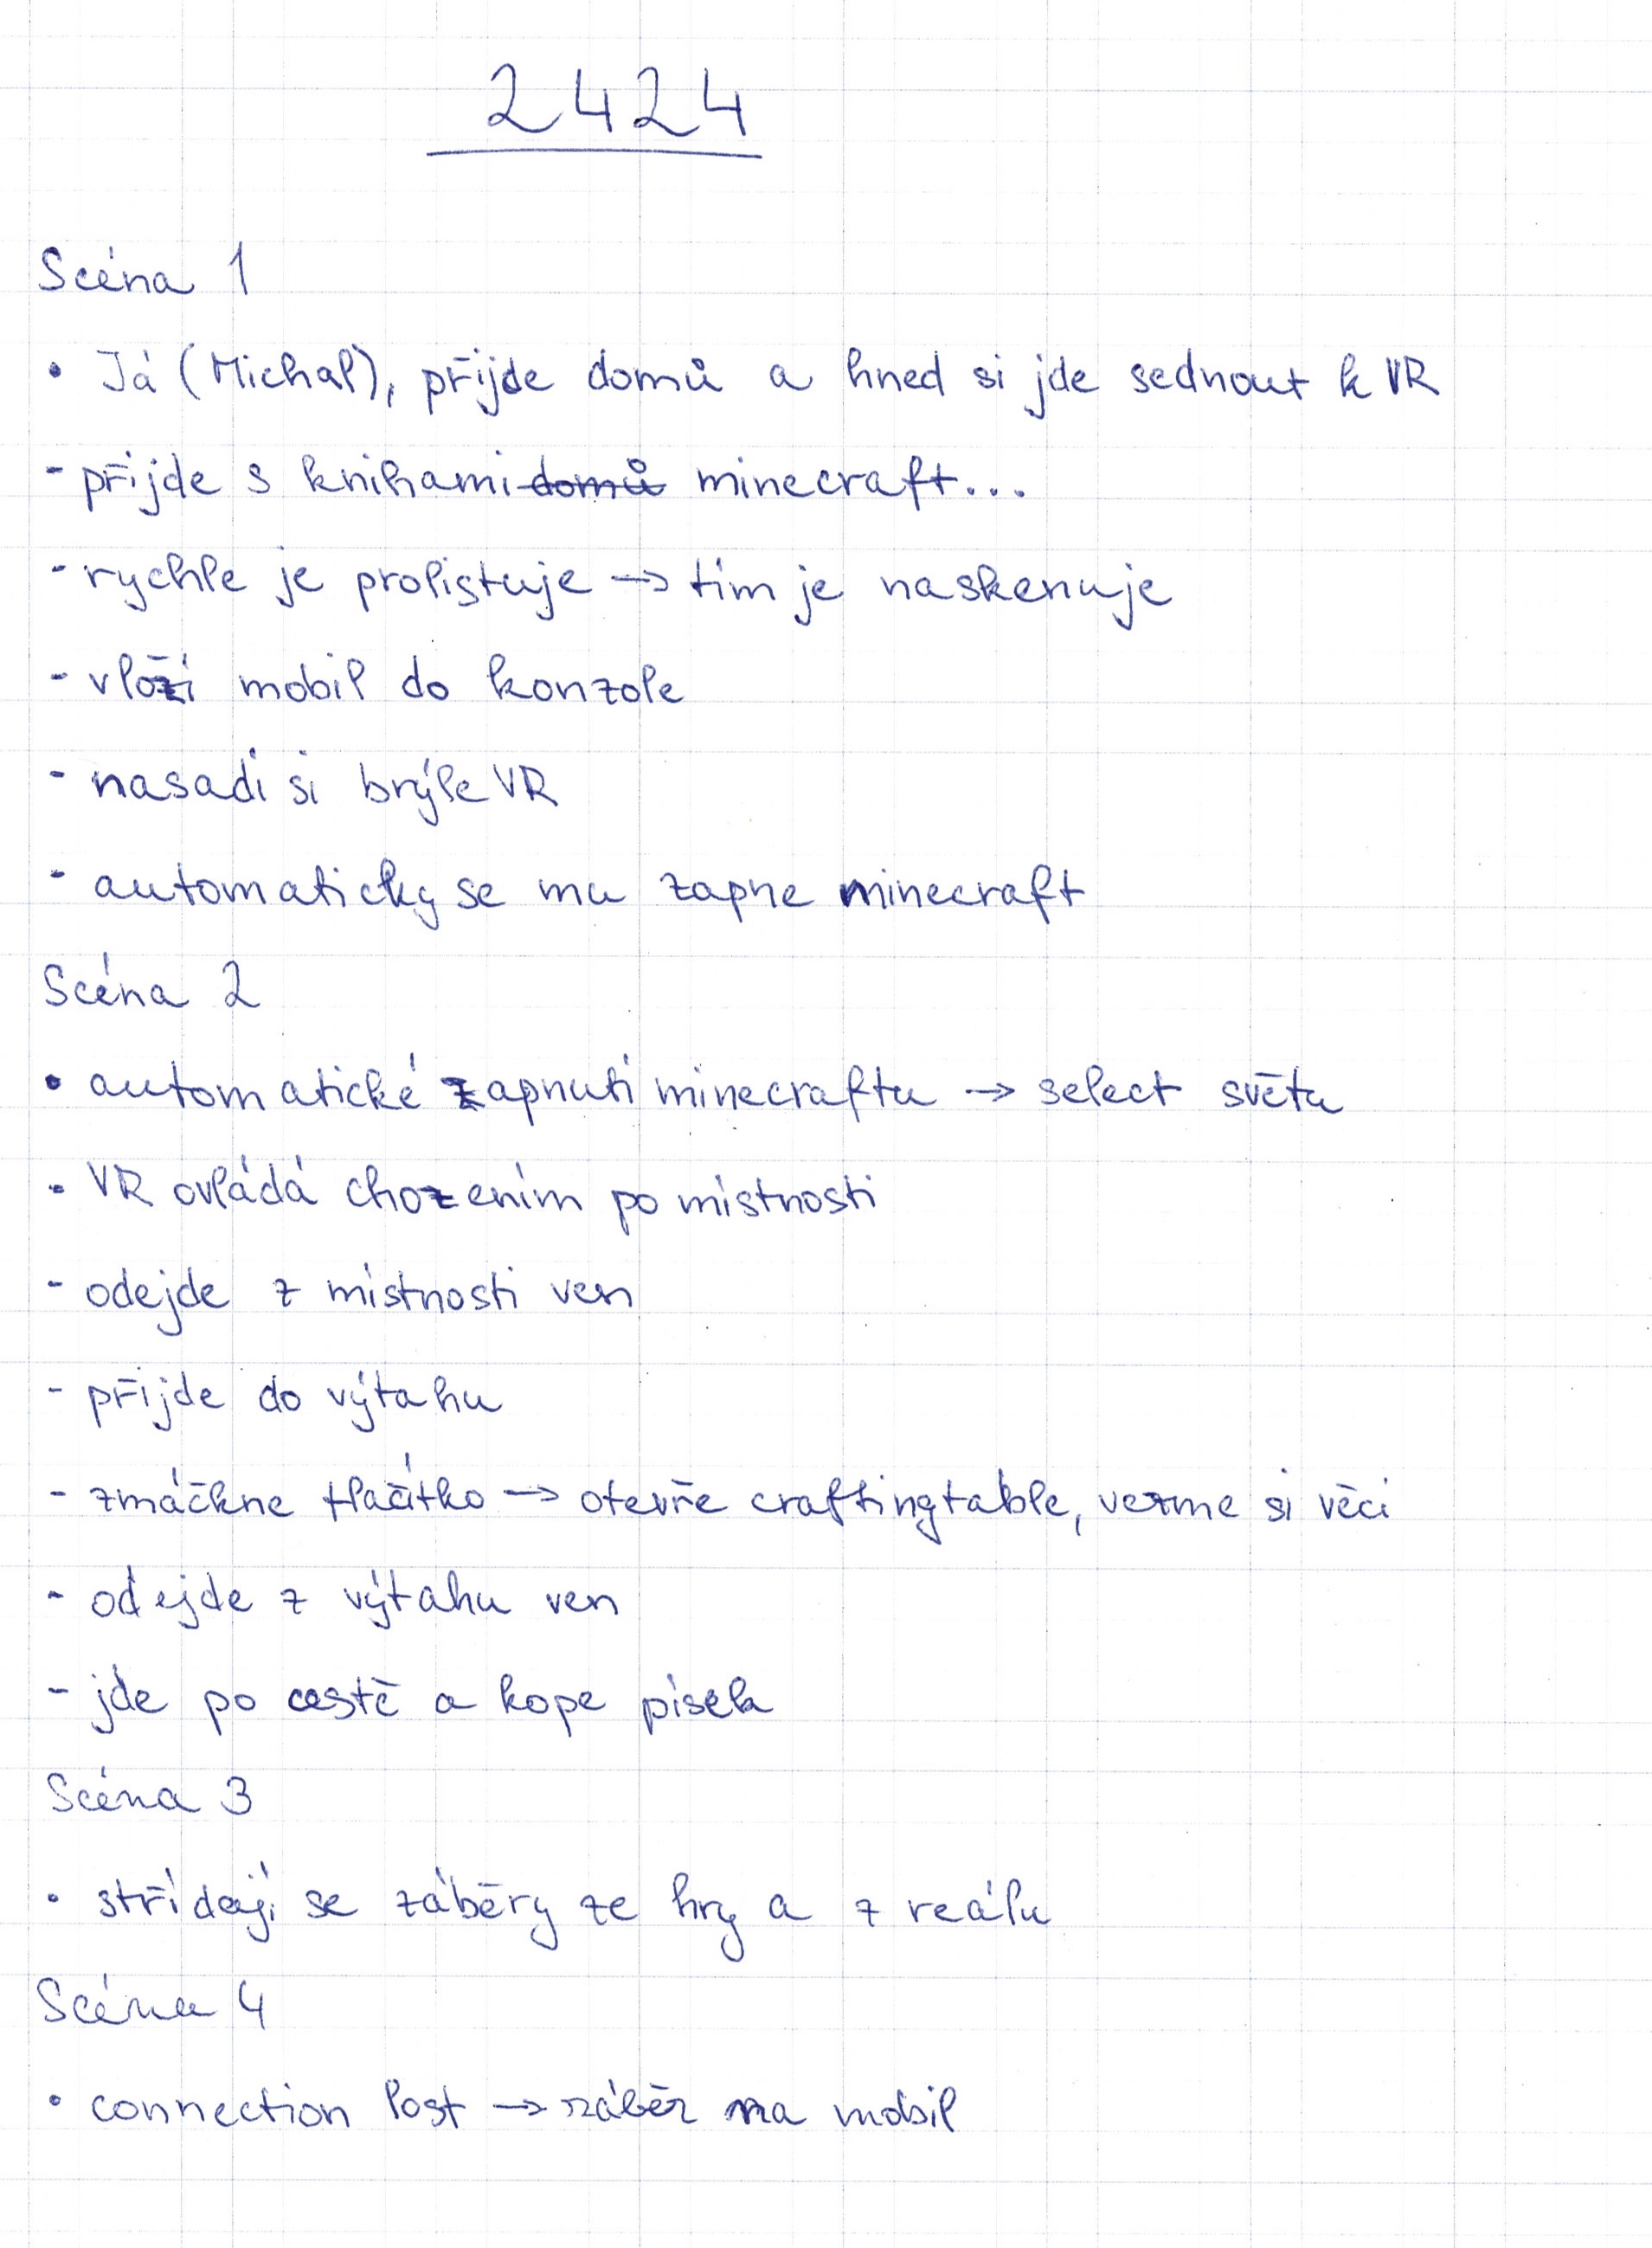 2424
Scéna 1
• Já (Michal), přijde domů a hned si jde sednout k VR
- přijde s knihami domů minecraft...
- rychle je prolistuje → tím je naskenuje
- vloží mobil do konzole
- nasadí si brýle VR
- automaticky se mu zapne minecraft
Scéna 2
• automatické zapnutí minecraftu → select světu
• VR ovládá chozením po místnosti
- odejde z místnosti ven
- přijde do výtahu
- zmáčkne tlačítko → otevře craftingtable, vezme si věci
- odejde z výtahu ven
- jde po cestě a kope písek
Scéna 3
• střídají se záběry ze hry a z reálu
Scéna 4
• connection lost → záběr na mobil